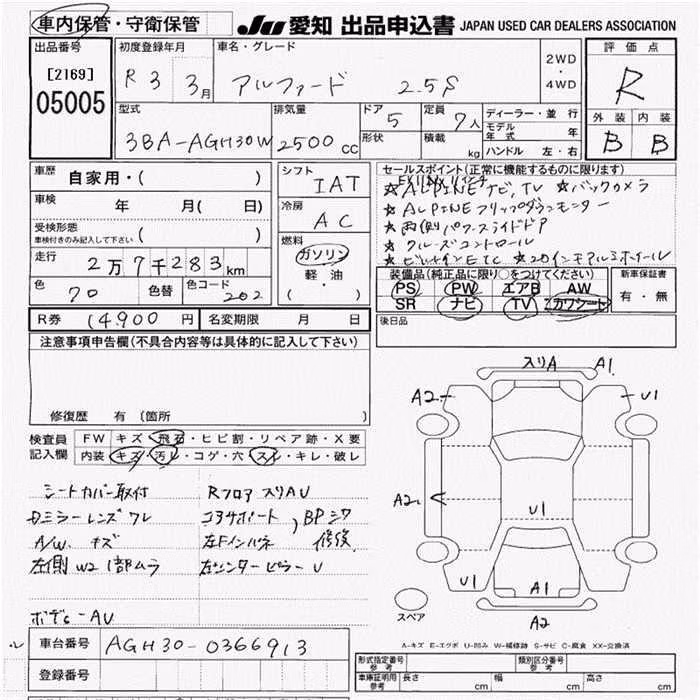 車内保管・守衛保管
JU 愛知 出品申込書 JAPAN USED CAR DEALERS ASSOCIATION
出品番号
[2169]
05005
初度登録年月
R3 3月
車名・グレード
アルファード 2.5S
2WD
・
4WD
評価点
R
外装 内装
B B
型式
3BA-AGH30W
排気量
2500 CC
ドア 5
形状
定員 7人
積載 kg
ディーラー・並行
モデル年式 年
ハンドル 左・右
車歴
自家用・( )
車検 年 月( 日)
受検形態
車検付きのみ記入して下さい ( )
走行 2万7千283km
色 70 色替 色コード 202
シフト
IAT
冷房
AC
燃料
ガソリン
・
軽・油
( )
セールスポイント(正常に機能するものに限ります)
☆ALPINEナビ,TV ☆バックカメラ
☆ALPINEフリップダウンモニター
☆両側パワースライドドア
☆クルーズコントロール
☆ビルトインETC ☆20インチアルミホイール
装備品(純正品に限り○をつけてください)
PS PW エアB AW
SR ナビ TV カワシート
新車保証書
有・無
後日品
R券 14,900円 名変期限 月 日
注意事項申告欄(不具合内容等は具体的に記入して下さい)
修復歴 有(箇所 )
検査員記入欄
FW キズ・飛石・ヒビ割・リペア跡・X要
内装 キズ・汚レ・コゲ・穴・スレ・キレ・破レ
シートカバー取付 Rフロア スリAU
Dミラーレンズワレ コアサポート,BPシワ
A/W.キズ 左Fインパネ 修復
左側W2 1部ムラ 左センターピラーU
ボデー AU
スリA A1
A2 U1
A2
U1
U1 A1
A2
スペア
A-キズ E-エクボ U-凹み W-補修跡 S-サビ C-腐食 XX-交換済
車台番号 AGH30-0366913
登録番号
形式指定番号 参考
類別区分番号 参考
車庫証明用 参考 長さ cm 幅 cm 高さ cm